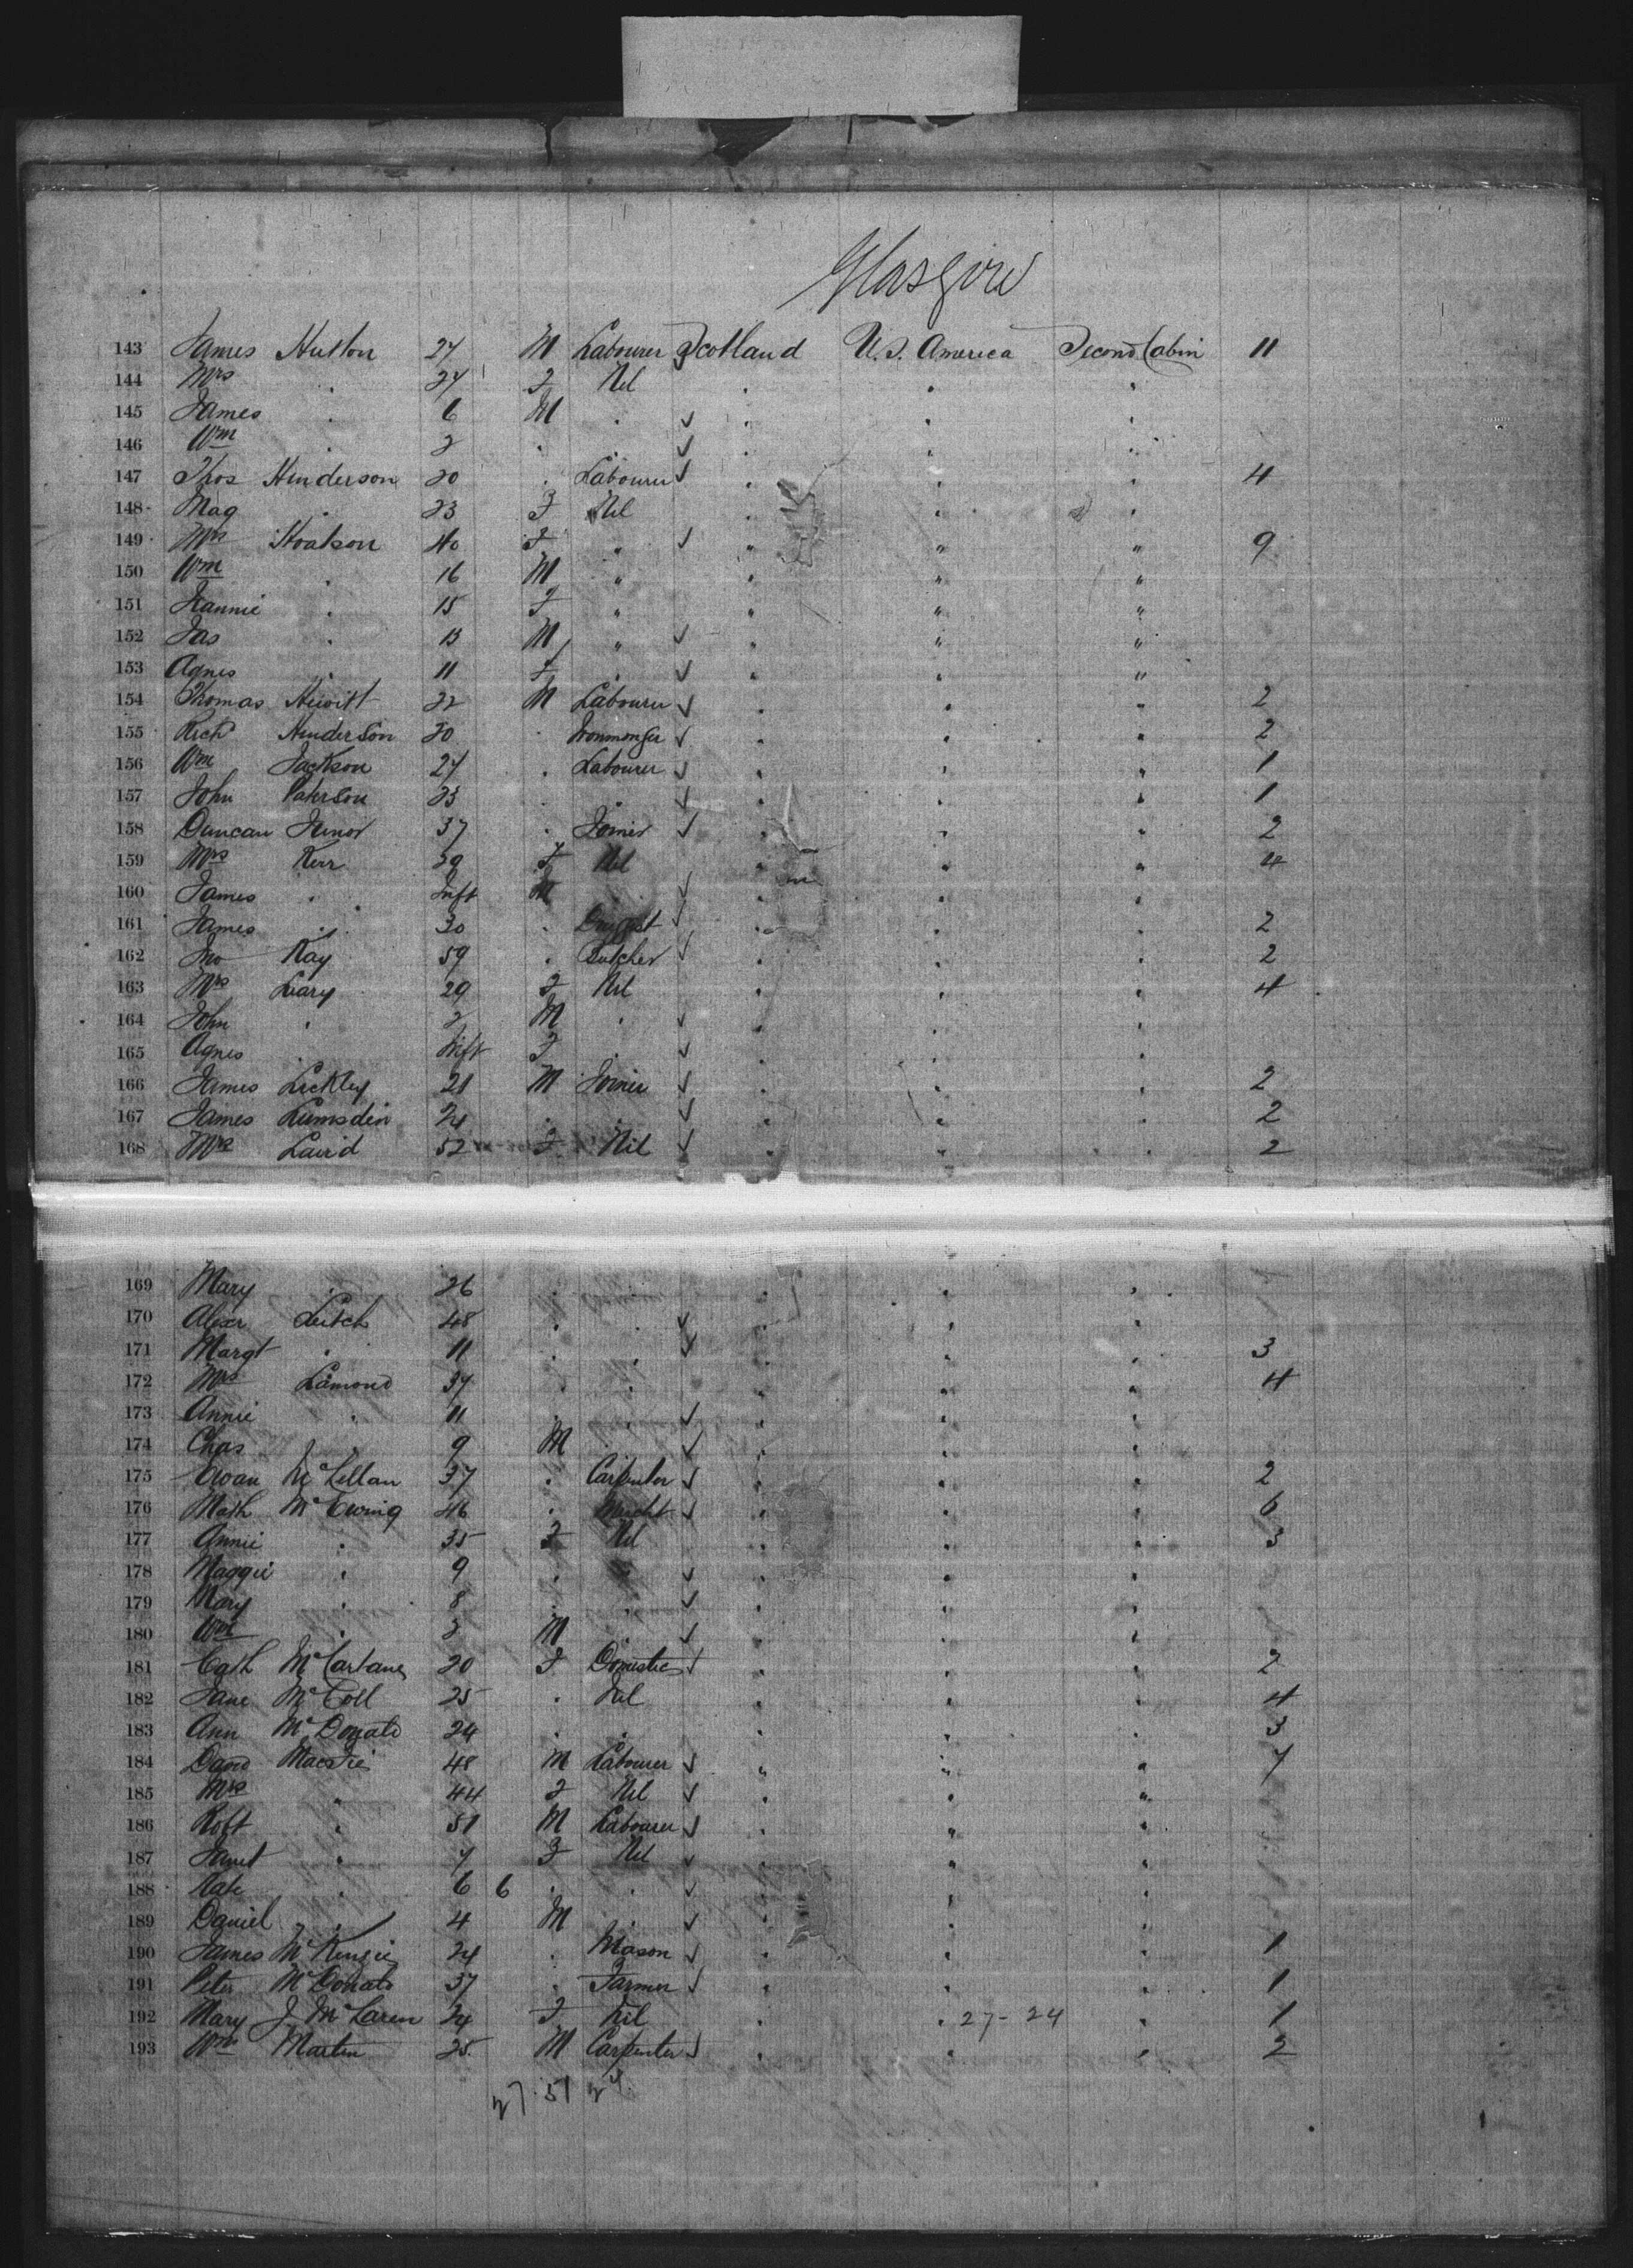 Glasgow
143 James Hutton 27 M Labourer Scotland U.S. America Second Cabin 11
144 Mrs . 27 F Nil . . .
145 James . 6 M . . . .
146 Wm . 2 . . . . .
147 Thos Henderson 20 . Labourer . . . 4
148 Mag . 23 F Nil . . .
149 Mrs Hoatson 40 F " " " " 9
150 Wm . 16 M " " " "
151 Jeannie . 15 F " " " "
152 Jas . 13 M " " " "
153 Agnes . 11 F . . . "
154 Thomas Hewitt 22 M Labourer . . . 2
155 Richd Henderson 20 . Ironmonger . . . 2
156 Wm Jackson 27 . Labourer . . . 1
157 John Paterson 23 . . . . . 1
158 Duncan Junor 37 . Joiner . . . 2
159 Mrs Kerr 29 F Nil . . . 4
160 James . Inft M . . .
161 James . . 30 . Druggist . . . 2
162 Jno Kay 59 . Butcher . . . 2
163 Mrs Leary 29 F Nil . . . 4
164 John . 2 M . . . .
165 Agnes . Inft F . . . .
166 James Leckley 21 M Joiner . . . 2
167 James Lumsden 24 . . . . . 2
168 Mrs Laird 52 F Nil . . . 2
169 Mary . 26 . . . . .
170 Alexr Leitch 48 . . . . .
171 Margt . 11 . . . . . 3
172 Mrs Lamond 37 . . . . . 4
173 Annie . 11 . . . . .
174 Chas . 9 M . . . .
175 Ewan McLellan 37 . Carpenter . . . 2
176 Math McEwing 46 . Mercht . . . 6
177 Annie . 35 F Nil . . . 3
178 Maggie . 9 . . . . .
179 Mary . 8 . . . . .
180 Wm . 3 M . . . .
181 Cath McCartane 20 F Domestic . . . 2
182 Jane McColl 25 . Nil . . . 4
183 Ann McDonald 24 . . . . . 3
184 David Macfie 48 M Labourer " " " 7
185 Mrs " 44 F Nil . . "
186 Robt " 51 M Labourer . " "
187 Janet " 7 F Nil . " "
188 Kate . 6 6 . . . . .
189 Daniel . 4 M . . . .
190 James McKenzie 24 . Mason . . . 1
191 Peter McDonald 37 . Farmer . . . 1
192 Mary J McLaren 24 F Nil . . 27-24 . 1
193 Wm Martin 25 M Carpenter . . . 2
27 . 51 24